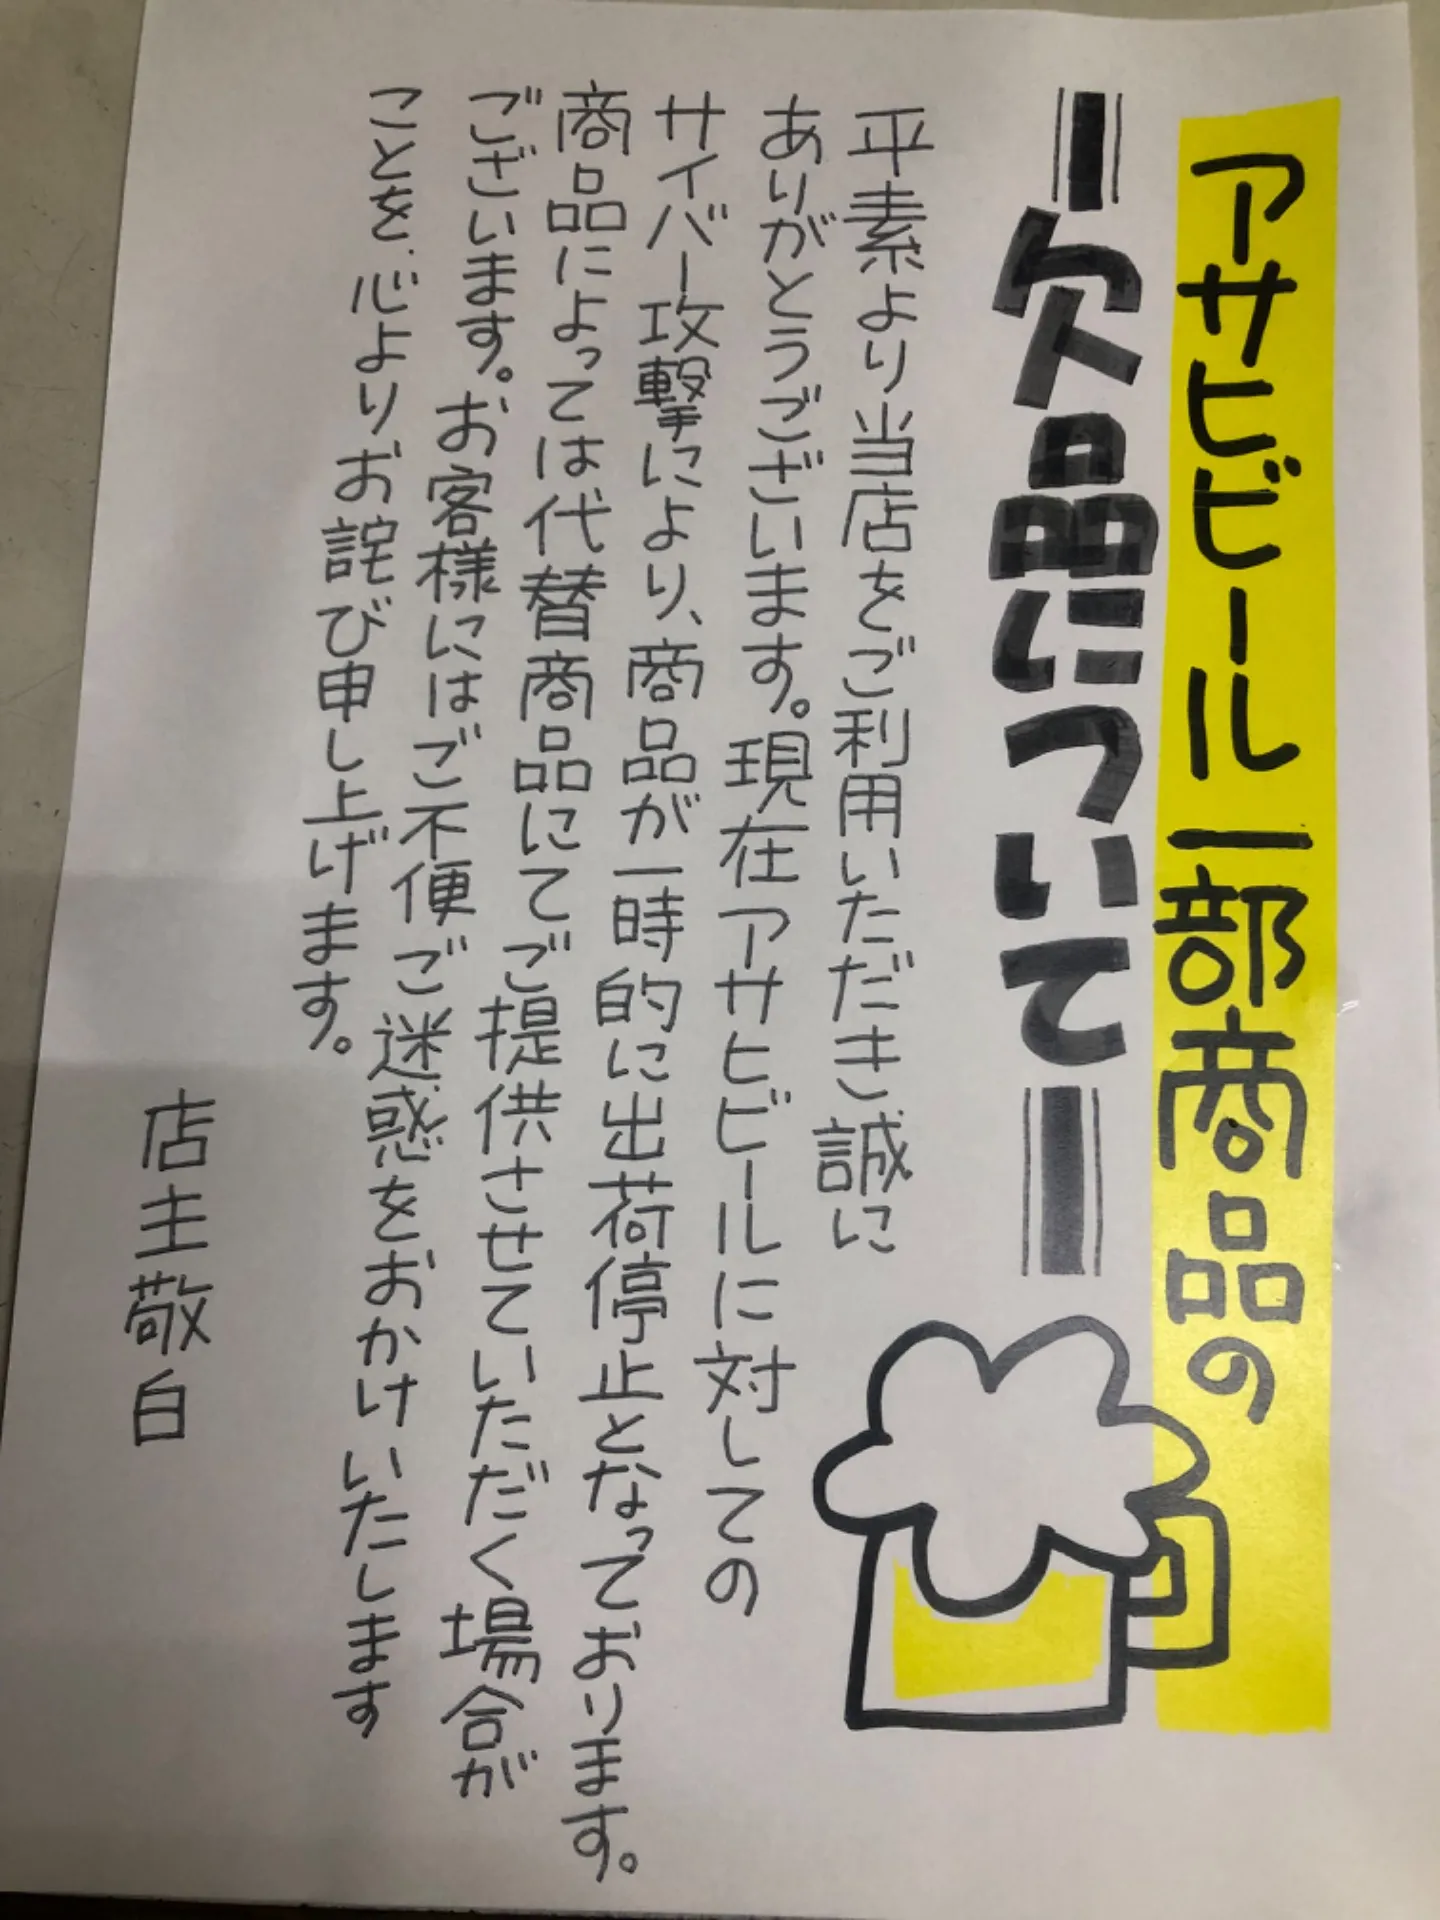 アサヒビール一部商品の
欠品について
平素より当店をご利用いただき誠に
ありがとうございます。現在アサヒビールに対しての
サイバー攻撃により、商品が一時的に出荷停止となっております。
商品によっては代替商品にてご提供させていただく場合が
ございます。お客様にはご不便ご迷惑をおかけいたします
ことを、心よりお詫び申し上げます。
店主敬白